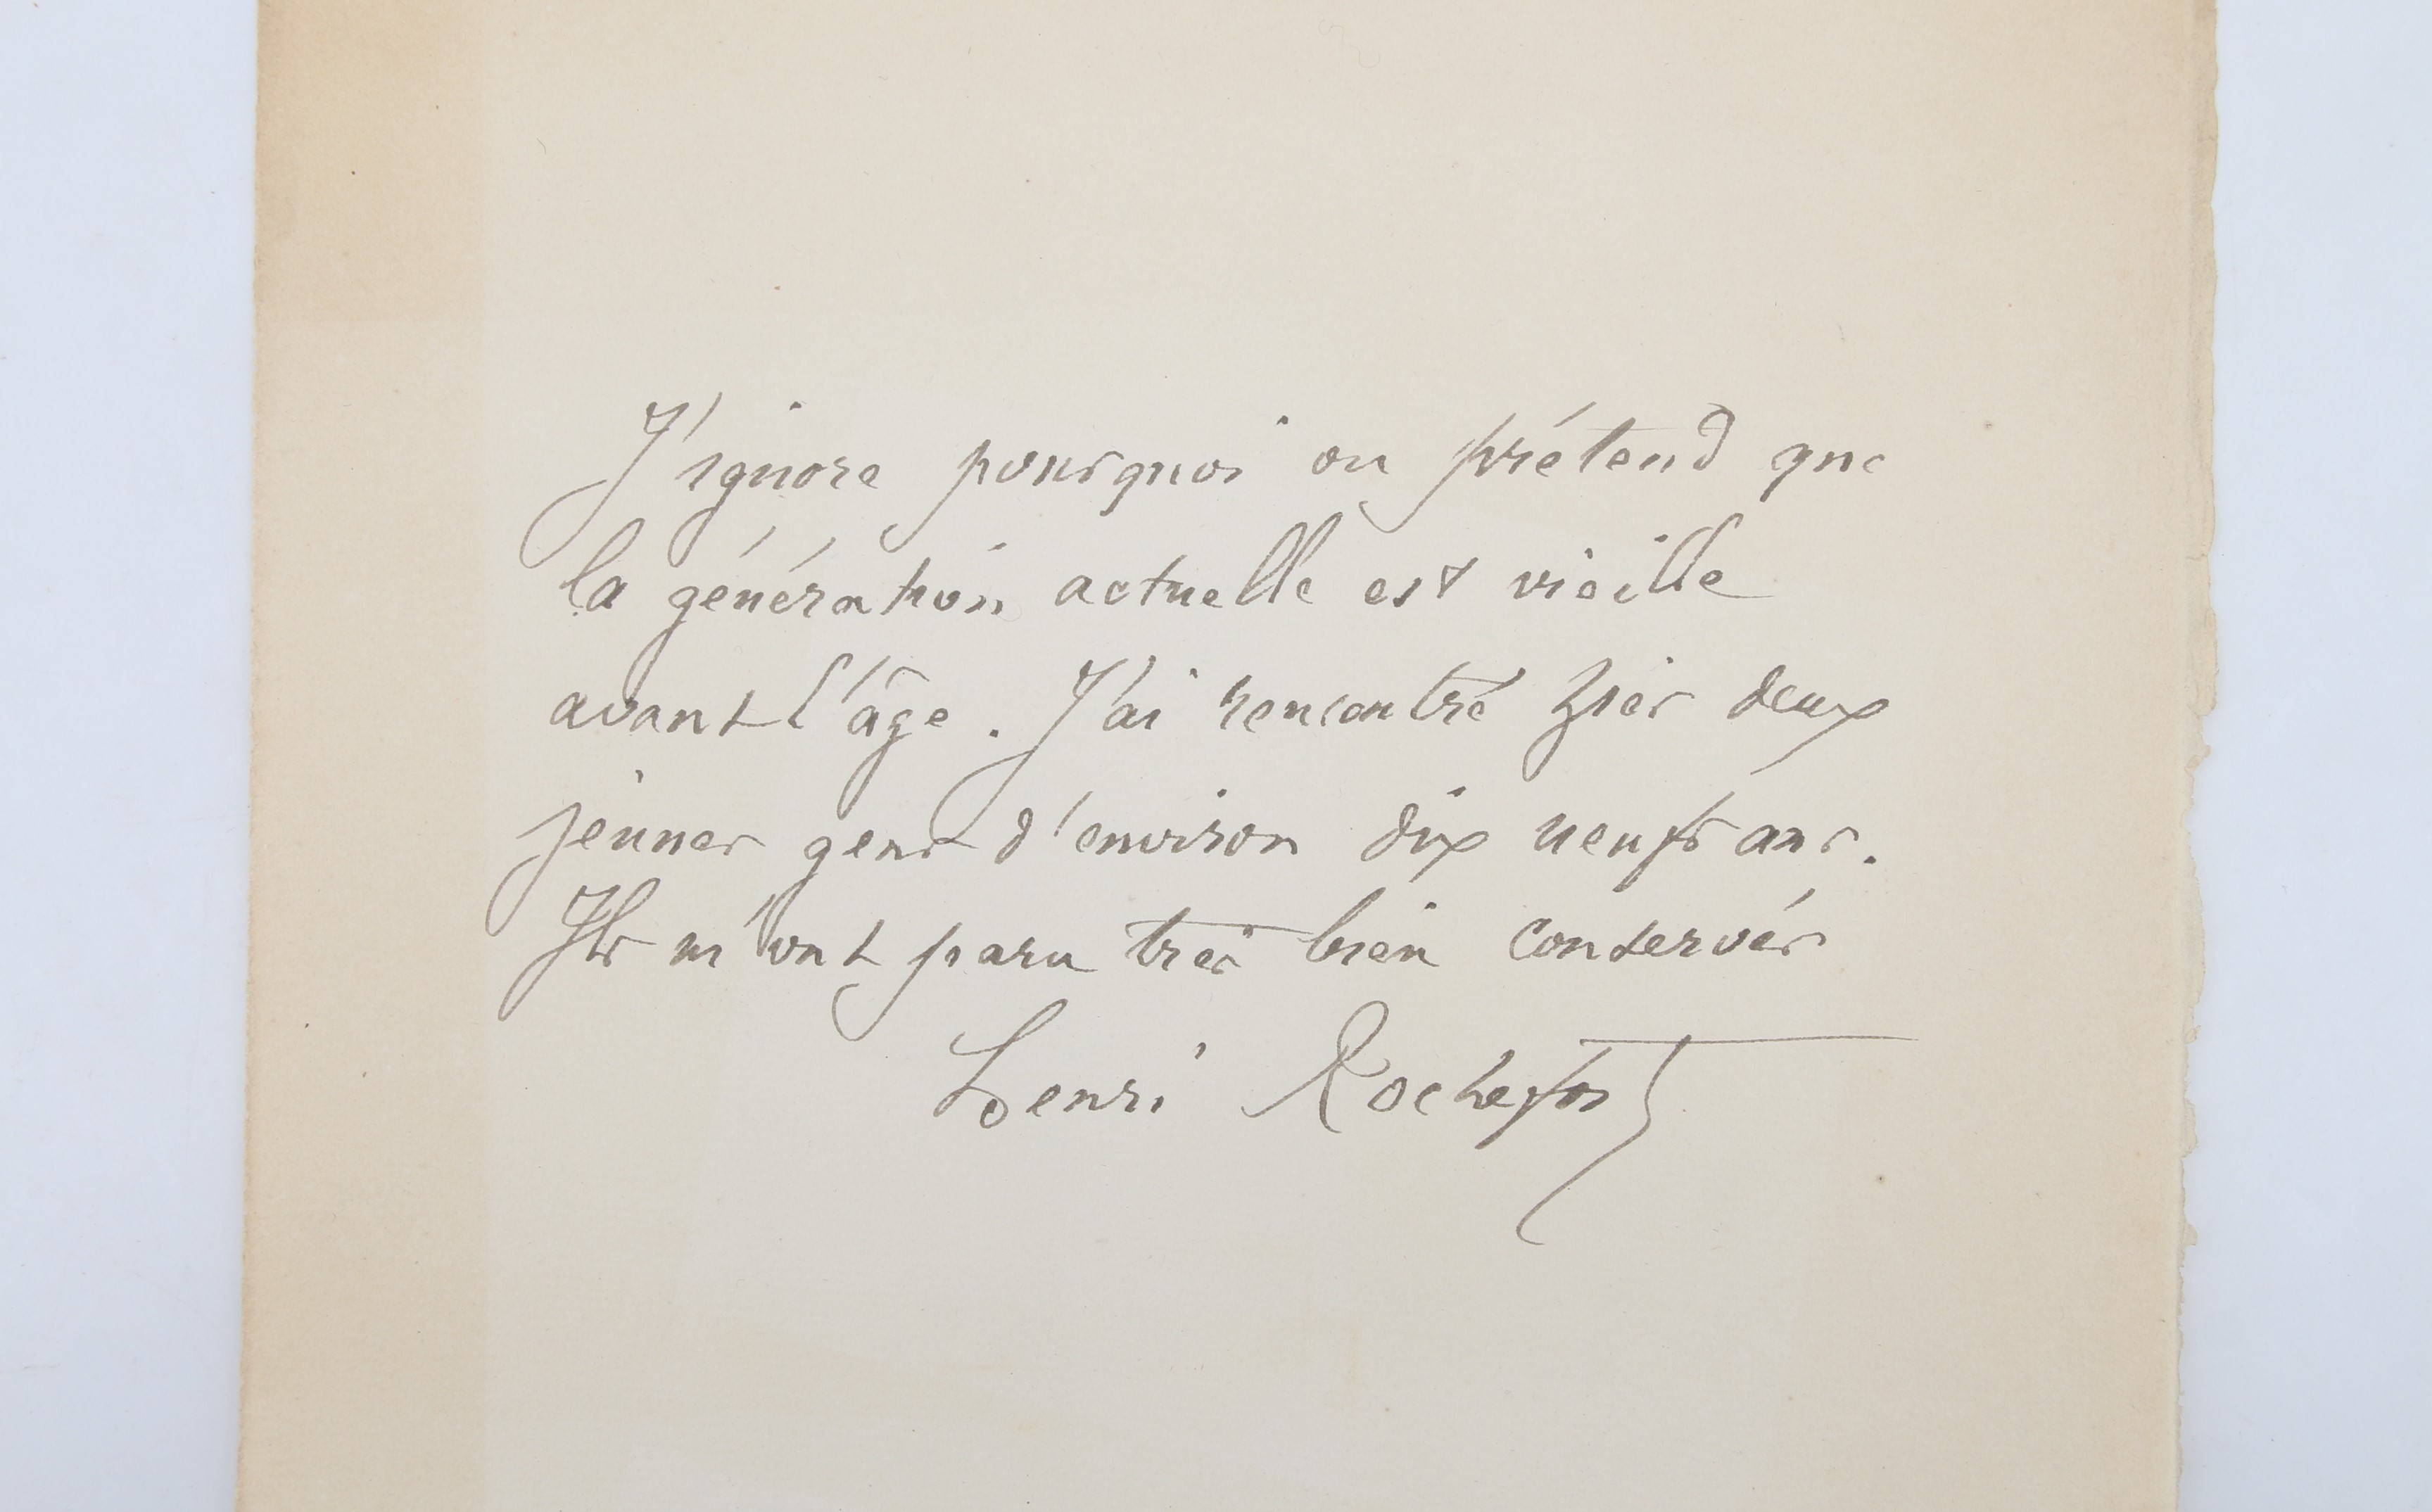 J'ignore pourquoi on prétend que
la génération actuelle est vieille
avant l'âge. J'ai rencontré hier deux
jeunes gens d'environ dix neufs ans.
Ils m'ont paru très bien conservés
Henri Rochefort